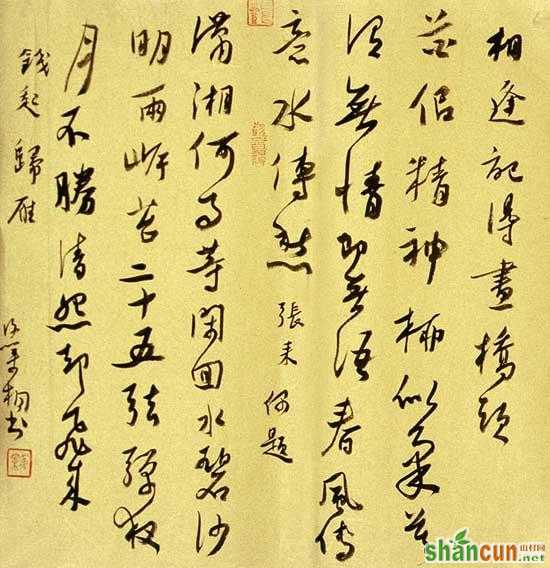 相逢記得畫橋頭
花佀精神柳似柔莫
謂無情即無語春風傳
意水傳愁 張耒 偶題
瀟湘何事等閑回水碧沙
明兩岸苔二十五弦彈夜
月不勝清怨却飛來
錢起 歸雁
书
shancun
山村网
.net